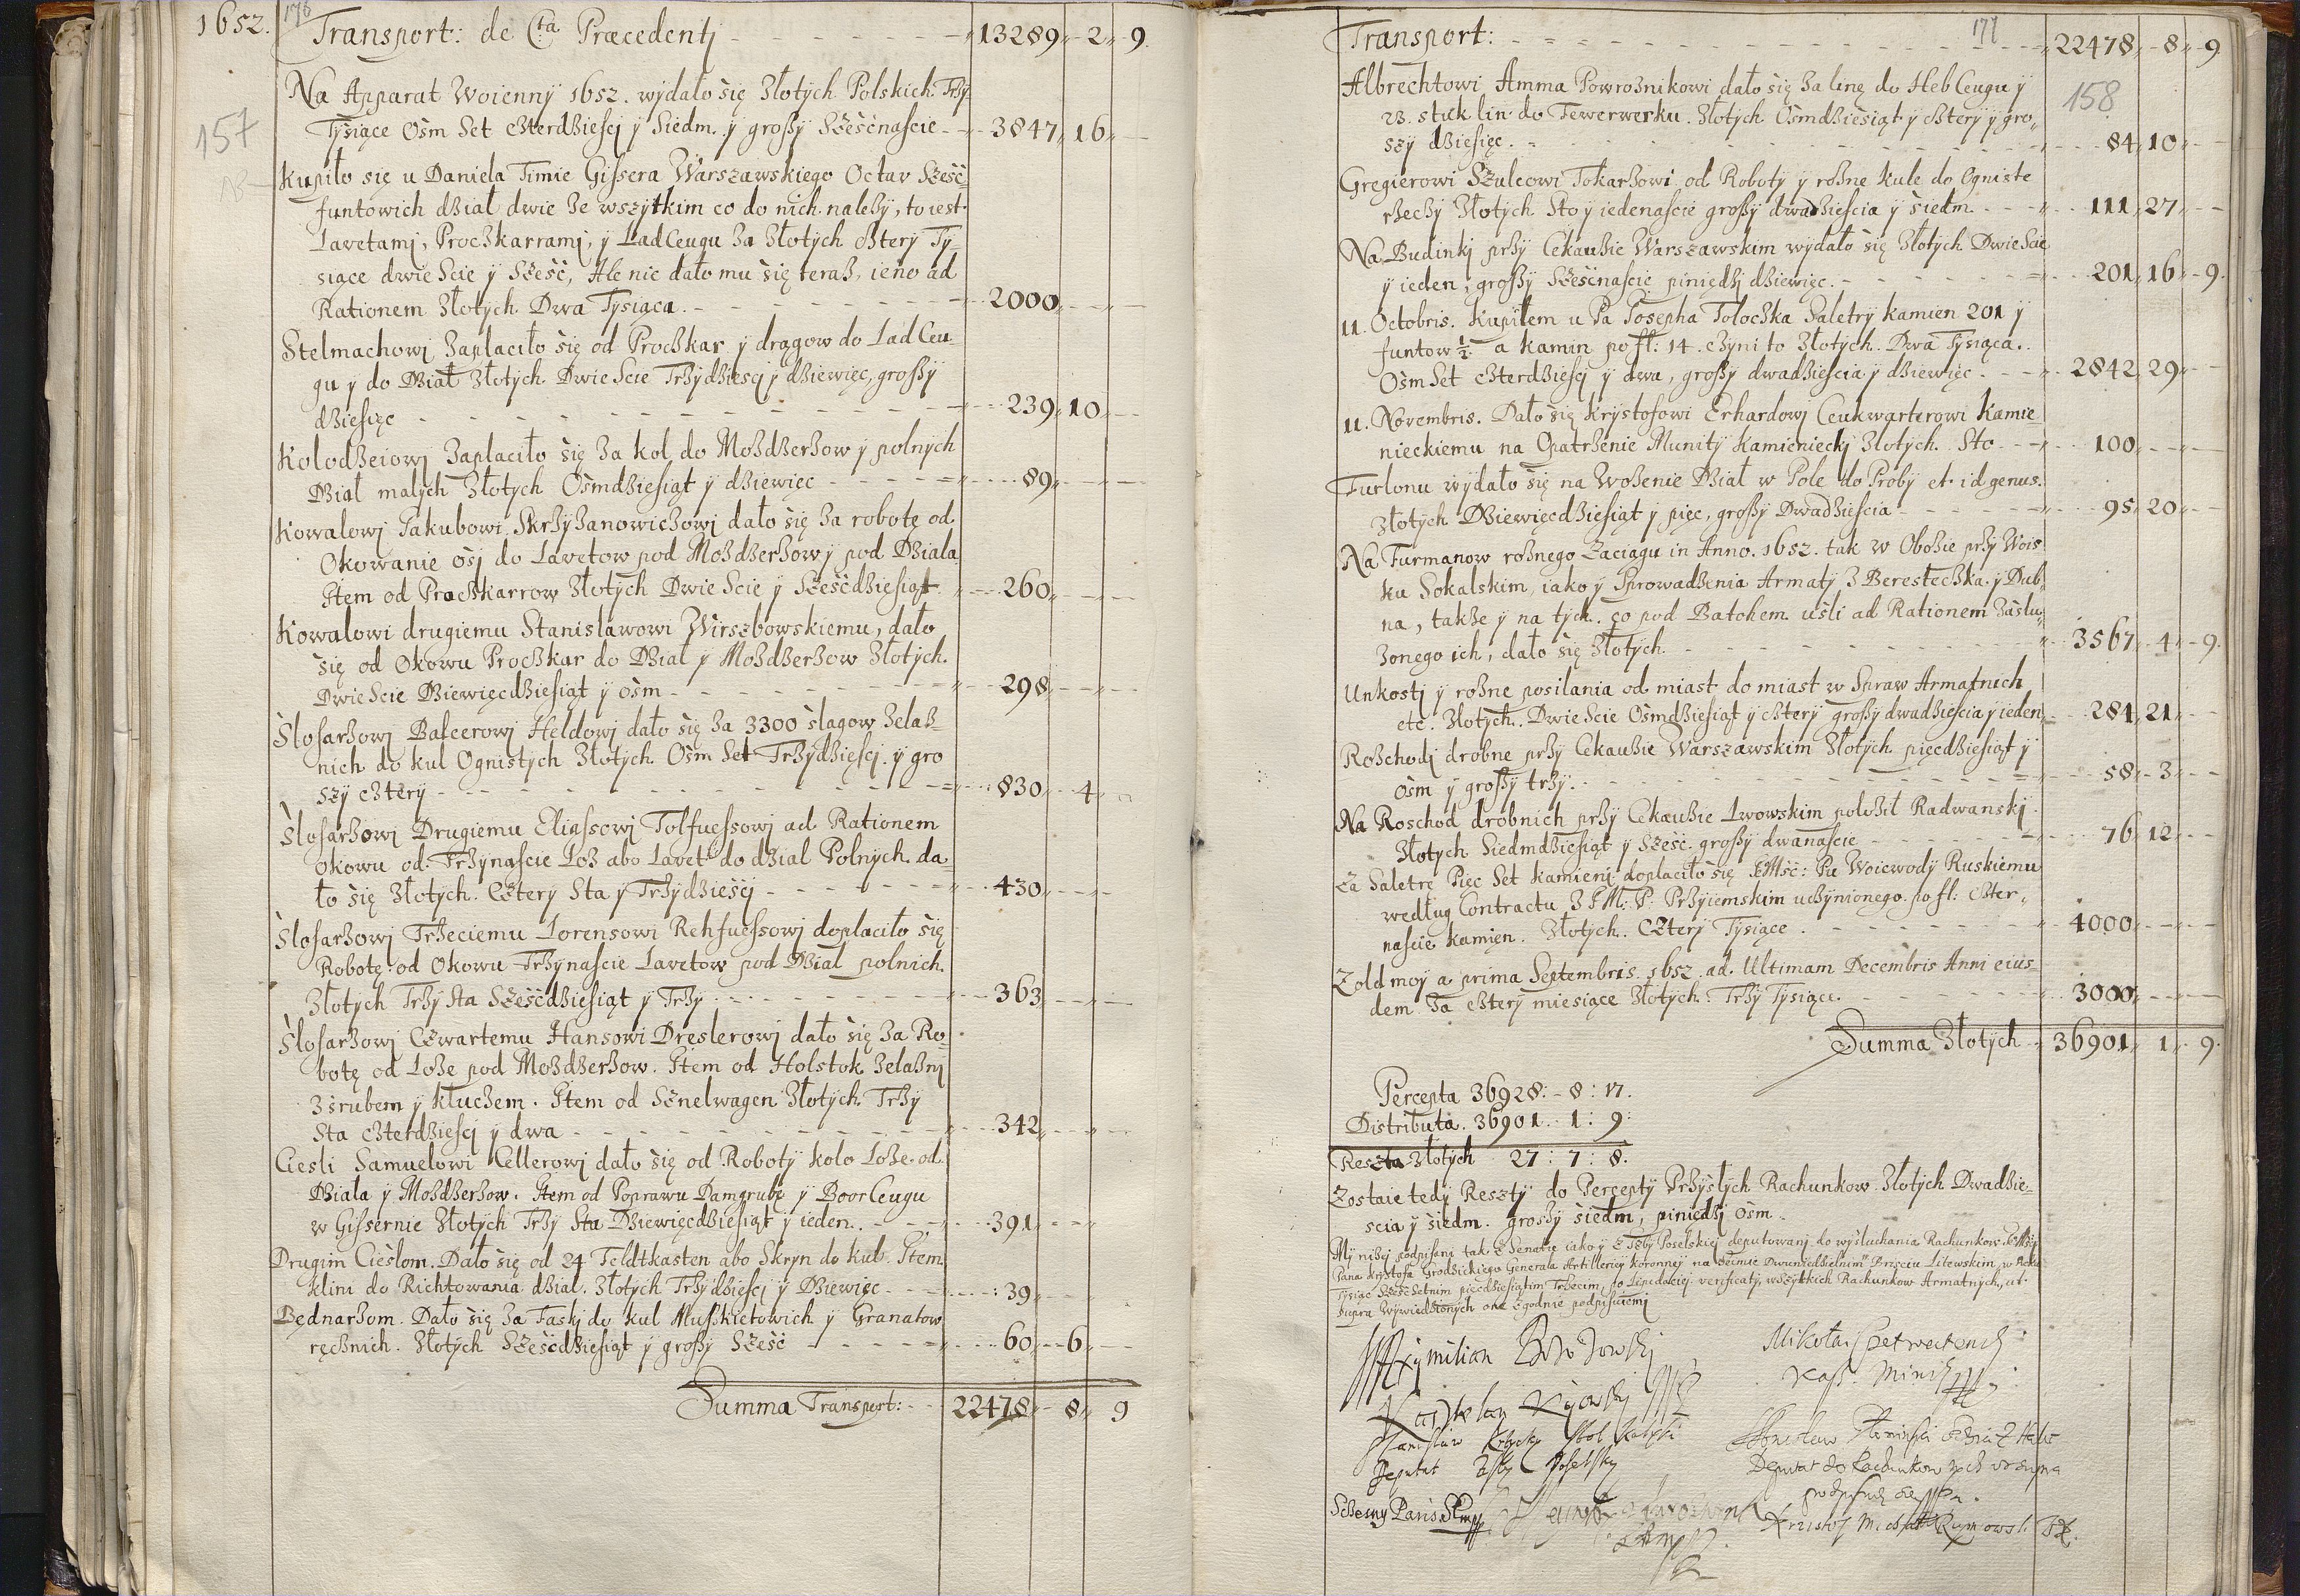 1652.
176
Transport: de Cta Præcedentj 13289 2 9.
Na Apparat Woiennÿ 1652. wÿdało się Złotÿch Polskich Trzÿ
Tÿsiące Osm Set czterdziescj ÿ Siedm. ÿ groszÿ Szesćnascie 3847 16
157
NB
Kupiło się u Daniela Timie Gissera Warszawskiego Octav Szesć-
funtowich dział dwie ze wszÿtkim co do nich należÿ, to iest
Lavetamj, Proczkarramj, ÿ LadCeugu za Złotÿch czterÿ Tÿ-
siące dwie Scie ÿ Szesć, Ale nic dało mu się teraz, ieno ad
Rationem Złotÿch Dwa Tÿsiąca. 2000
Stelmachowj Zapłaciło się od Proczkar ÿ drągow do Lad Ceu-
gu ÿ do Dział Złotÿch Dwie Scie Trzÿdziescj ÿ dziewięc, groszÿ
dziesięc 239 10
Kolodzeiowj Zapłaciło się za koł do Mozdzerzow ÿ polnÿch
Dział małÿch Złotÿch Osmdziesiąt ÿ dziewięc 89
Kowalowj Jakubowi Skrzÿzanowiczowj dało się za robotę od
Okowanie osj do Lavetow pod Mozdzerzow ÿ pod Działa
Item od Proczkarrow Złotÿch Dwie Scie ÿ Szesćdziesiąt 260
Kowalowi drugiemu Stanislawowi Wirszbowskiemu, dało
się od Okowu Proczkar do Dział ÿ Mozdzerzow Złotÿch
Dwie Scie Dziewięcdziesiąt ÿ osm 298
Slosarzowj Balcerowj Heldowj dało się za 3300 slagow zelaz-
nich do kul Ognistÿch Złotÿch. Osm Set Trzÿdziescj ÿ gro
szÿ czterÿ 830 4
Slosarzowj Drugiemu Eliassowj Tolfuessowj ad Rationem
Okowu od Trzÿnascie Loz abo Lavet do dział Polnÿch. da-
ło się Złotÿch. Czterÿ Sta ÿ Trzÿdziescj 430
Slosarzowj Trzeciemu Lorensowi Rehfuessowj dopłaciło się
Robotę od Okowu Trzÿnascie Lavetow pod Dział polnich.
Złotÿch Trzÿ Sta Szesćdziesiąt ÿ Trzÿ 363
Slosarzowj Czwartemu Hansowi Dreslerowj dało się za Ro-
botę od Loze pod Mozdzerzow. Item od Holstok zelaznj
z srubem ÿ kluczem. Item od Sznelwagen Złotÿch Trzÿ
Sta czterdziescj ÿ dwa 342
Ciesli Samuelowi Cellerowj dało się od Robotÿ kolo Loze od
Działa ÿ Mozdzerzow. Item od Poprawu Damgrubę ÿ BoorCeugu
w Gissernie Złotÿch Trzÿ Sta Dziewięcdziesiąt ÿ ieden. 391
Drugim Cieslom. Dało się od 24 Feldtkasten abo Skrÿn do kul. Item
klini do Richtowania dział. Złotÿch Trzÿdziescj ÿ Dziewięc 39
Bednarzom. Dało się za Faskj do kul Muszkietowich ÿ Granatow
ręcznich. Złotÿch Szesćdziesiąt ÿ groszÿ Szesć 60 6
Summa Transport: 22478 8 9
177
Transport: 22478 8 9
158
Albrechtowi Amma Powroznikowi dało się za linę do HebCeugu ÿ
23. stuk lin do Fewerwerku. Złotÿch Osmdziesiąt ÿ czterÿ ÿ gro-
szÿ dziesięc. 84 10
Gregierowi Szulcowi Tokarzowi od Robotÿ ÿ rozne kule do Ogniste
rzeczÿ Złotÿch Sto ÿ iedenascie groszÿ dwadziescia ÿ siedm. 111 27
Na Budinkj przÿ Cekauzie Warszawskim wÿdało się Złotÿch Dwie Scie
ÿ ieden, groszÿ Szesćnascie piniędzj dziewięc. 201 16 9.
11. Octobris. Kupiłem u Pa Josepha Toloczka Saletrÿ kamien 201 ÿ
funtow ½ a kamin po fl: 14. czÿni to Złotÿch. Dwa Tÿsiąca.
Osm Set czterdziescj ÿ dwa, groszÿ dwadziescia ÿ dziewięc 2842 29
11. Novembris. Dało się Krÿstofowi Erhardowj Ceukwarterowi Kamie-
nieckiemu na Opatrzenie Munitÿ Kamienieckÿ Złotÿch. Sto 100
Furlonu wÿdało się na Wozenie Dział w Pole do Probÿ et id genus.
Złotÿch Dziewięcdziesiąt ÿ pięc, groszÿ Dwadziescia 95 20
Na Furmanow roznego Zaciągu in Anno. 1652. tak w Obozie przÿ Wois-
ku Sokalskim, iako ÿ Sprowadzenia Armatÿ z Beresteczka ÿ Dub-
na, takze ÿ na tÿch. co pod Batohem usli ad Rationem zaslu-
zonego ich, dało się Złotÿch 3567 4 9.
Unkostj ÿ rozne posilania od miast do miast w Spraw Armatnich
etc. Złotÿch. Dwie Scie Osmdziesiąt ÿ czterÿ groszÿ dwadziescia ÿ ieden 284 21
Rozchodj drobne przÿ Cekauzie Warszawskim Złotÿch pięcdziesiąt ÿ
osm ÿ groszÿ trzÿ. 58 3
Na Roschod drobnich przÿ Cekauzie Lwowskim położił Radwanskj
Złotÿch Siedmdziesiąt ÿ Szesć. groszÿ dwanascie 76 12
Za Saletrę Pięc Set kamienj dopłaciło się JEMsć: Pu Woiewodÿ Ruskiemu
według Contractu z JM: P: Przÿiemskim uczÿnionego po fl: czter-
nascie kamięn. Złotÿch. Czterÿ Tÿsiące. 4000
Zold moÿ a prima Septembris 1652. ad. Ultimam Decembris Anni eius-
dem za czterÿ miesiące Złotÿch. Trzÿ Tÿsiące. 3000
Summa Złotÿch 36901 1 9.
Percepta 36928: 8: 17.
Distributa. 36901. 1: 9:
Reszta Złotÿch 27: 7: 8.
Zostaie tedÿ Resztÿ do Perceptÿ Przÿszlÿch Rachunkow Złotÿch Dwadzie-
scia ÿ siedm. groszÿ siedm, piniędzj osm.
Mÿ nizej podpisani tak z Senatu iako ÿ z Izbÿ Poselskiej deputowanj do wÿsluchania Rachunkow
Pana Krÿstofa Grodzickiego Generala Artillerieÿ Koronneÿ na Seimie Dwuniedzielnim Brzesciu Litewskim w Roku
Tÿsiąc Szesć Setnim pięcdziesiątim Trzecim, po verificatÿ wszÿtkich Rachunkow Armatnÿch, ut
supra wÿwiedzionÿch one zgodnie podpisuiemj
Maxÿmilian Brzozowskj
Kasztelan Kijowskj
Mikolaj Czetwertensk
Kasz. Minsk
Stanislaw
Deputat Poselskÿ
Deputat do Rachunkow
Sczesny Paris